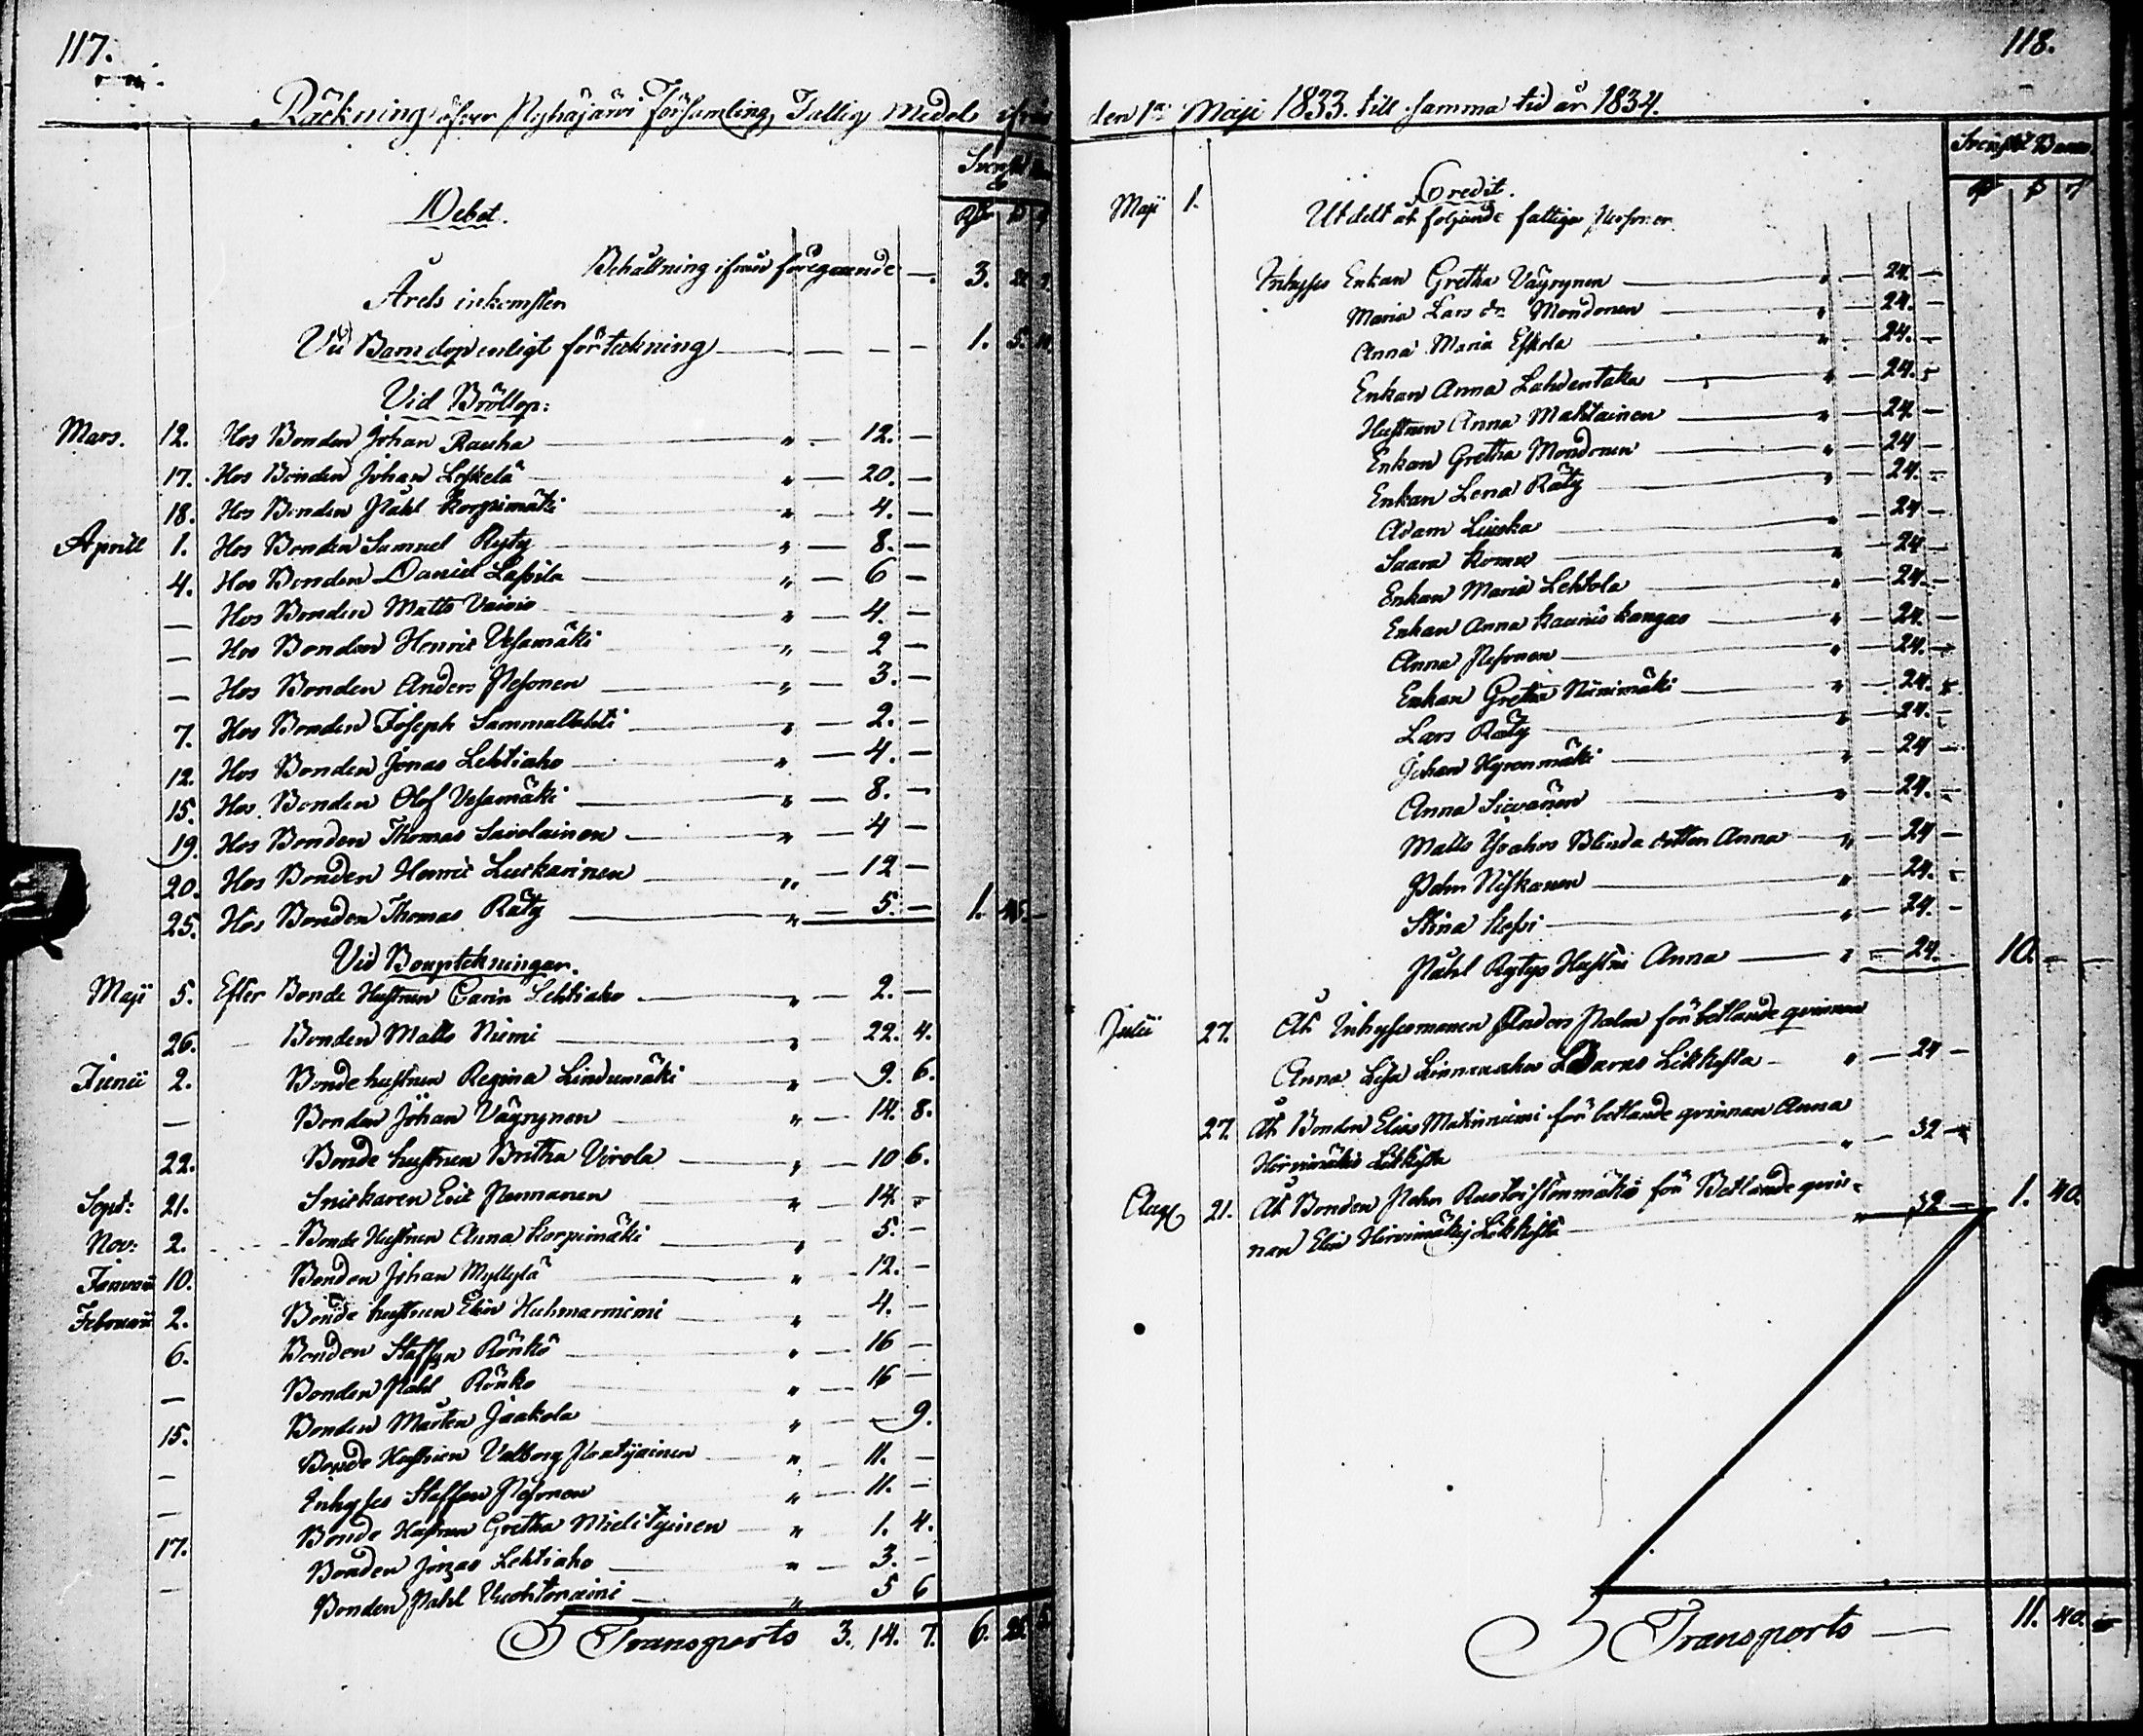 117.
Räkning öfver Pyhäjärvi Församling, Fattig Medel ifrån
Svenskt
Debet.
Behållning ifrån föregaende — 3.
Årets inkomster
Vid Barndop enligt förteckning — 1. 5.
Vid Bröllop:
Mars. 12. Hos Bonden Johan Rauha " — 12. —
17. Hos Bonden Johan Leskelä " — 20. —
18. Hos Bonden Påhl Korpimäki " — 4. —
Aprill 1. Hos Bonden Samuel Ryty " — 8. —
4. Hos Bonden Daniel Lassila " — 6 —
— Hos Bonden Matts Vaisio " — 4. —
— Hos Bonden Henric Vesamäki " — 2 —
— Hos Bonden Anders Pesonen " — 3. —
7. Hos Bonden Joseph Sammallahti " — 2. —
12. Hos Bonden Jonas Lehtiaho " — 4. —
15. Hos Bonden Olof Vesamäki " — 8. —
19. Hos Bonden Thomas Savolainen " — 4 —
20. Hos Bonden Henric Luskarinen " — 12 —
25. Hos Bonden Thomas Räty " — 5. — 1. 46. —
Vid Bouptekningar.
Maji 5. Efter Bonde Hustrun Carin Lehtiaho " — 2. —
26. — Bonden Matts Niemi " — 22. 4.
Junii 2. Bonde hustrun Regina Lindumäki " — 9. 6.
— Bonden Johan Väyrynen " — 14. 8.
22. Bonde hustrun Britha Virola " — 10 6.
Sept: 21. Snickaren Eric Pennanen " — 14. —
Nov: 2. Bonde Hustrun Anna Korpimäki " — 5. —
Januarii 10. Bonden Johan Myllylä " — 12. —
Februarii 2. Bonde hustrun Elin Huhmarniemi " — 4. —
6. Bonden Staffan Rönkö " — 16 —
— Bonden Påhl Rönkö " — 16 —
15. Bonden Mårten Jaakola " — — 9.
— Bonde Hustrun Valborg " — 11. —
— Inhyses Staffan Pesonen " — 11. —
17. Bonde Hustrun Gretha Mielityinen " 1. 4.
— Bonden Jonas Lehtiaho " — 3. —
Bonden Påhl Vuohtoniemi " 5 6
Transporto 3. 14. 7. 6.
118.
den 1a Maji 1833. till samma tid år 1834.
Svenskt Banco
Credit.
Maji 1. Utdelt åt foljande fattiga Personer
Inhyses Enkan Gretha Väyrynen " — 24. —
Maria Lars dr. Mondonen " — 24. —
Anna Maria Eskola " — 24. —
Enkan Anna Lahdentaka " — 24. —
Hustrun Anna Mahtainen " — 24. —
Enkan Gretha Mondonen " — 24 —
Enkan Lena Räty " — 24. —
Adam Liuska " — 24 —
Saara Komu " — 24 —
Enkan Maria Lehtola " — 24. —
Enkan Anna Kauniskangas " — 24. —
Anna Pesonen " — 24. —
Enkan Gretha Niinimäki " — 24. —
Lars Räty " — 24. —
Johan Hyvenmäki " — 24 —
Anna " — 24. —
Matts Ysahos Blinda dotter Anna " — 24 —
Pehr Niskanen " — 24. —
Stina Kessi " — 24. —
Påhl Rytys Hustru Anna " — 24. — 10. — —
Julii 27. Åt Inhysesmannen Anders Palm för betlande qvinnan
Anna Lisa Linnanahos Barns Likkista " — 24 —
27. Åt Bonden Elias Matinniemi för betlande qvinnan Anna
Hirvimäkis Likkista " — 32 —
Aug 21. Åt Bonden Pehr Ruotoistenmäki för Betlande qvin-
nan Elin Hirvimäkis Likkista " 32 — 1. 40.
Transporto — 11. 40. —